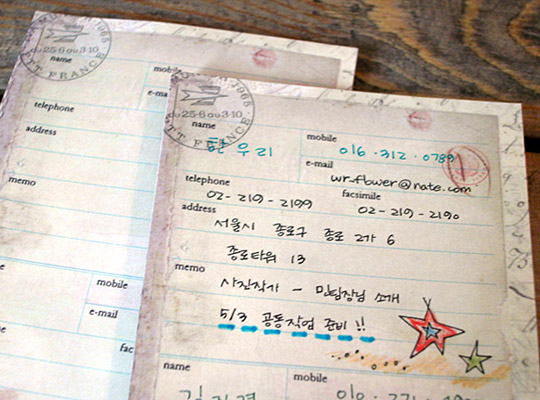 1965
du 25·6 au 3·10
PTT FRANCE
name
mobile
e-ma
telephone
address
memo
mobile
e-mail
fac
1965
du 25·6 au 3·10
PTT FRANCE
name
한우리
mobile
016·312·0789
e-mail
wr.flower@nate.com
telephone
02-219-2199
facsimile
02-219-2190
address
서울시 종로구 종로 2가 6
종로타워 13
memo
사진작가 - 민팀장님 소개
5/3 공동작업 준비!!
name
mobile